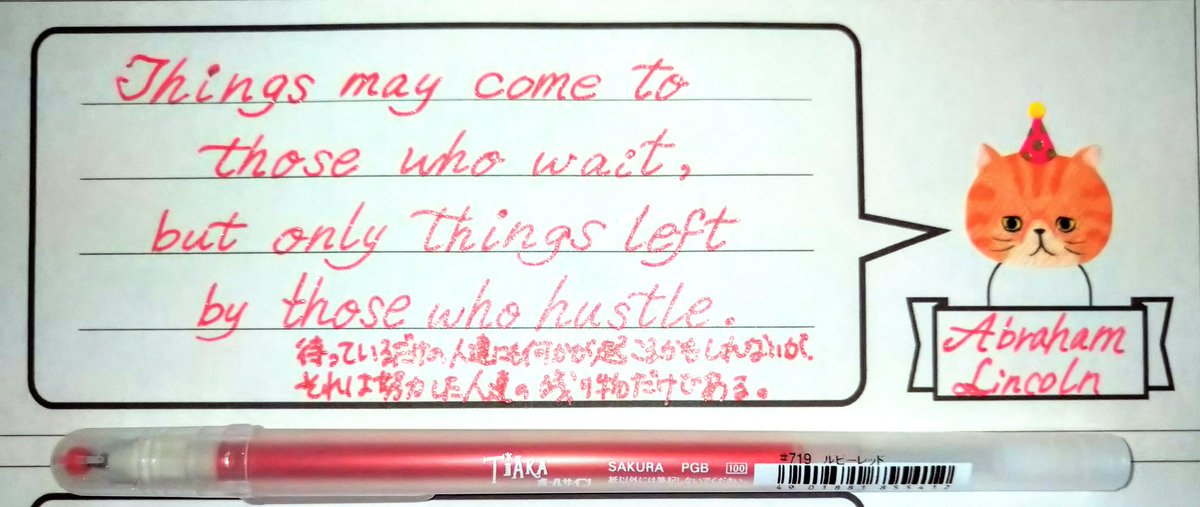 Things may come to
those who wait,
but only things left
by those who hustle.
待っているだけの人達にも何かが起こるかもしれないが、
それは努力した人達の残り物だけである。
Abraham
Lincoln
TiARA
ボールサイン
SAKURA PGB 100
紙以外には筆記しないでください
#719 ルビーレッド
4 901881 855412